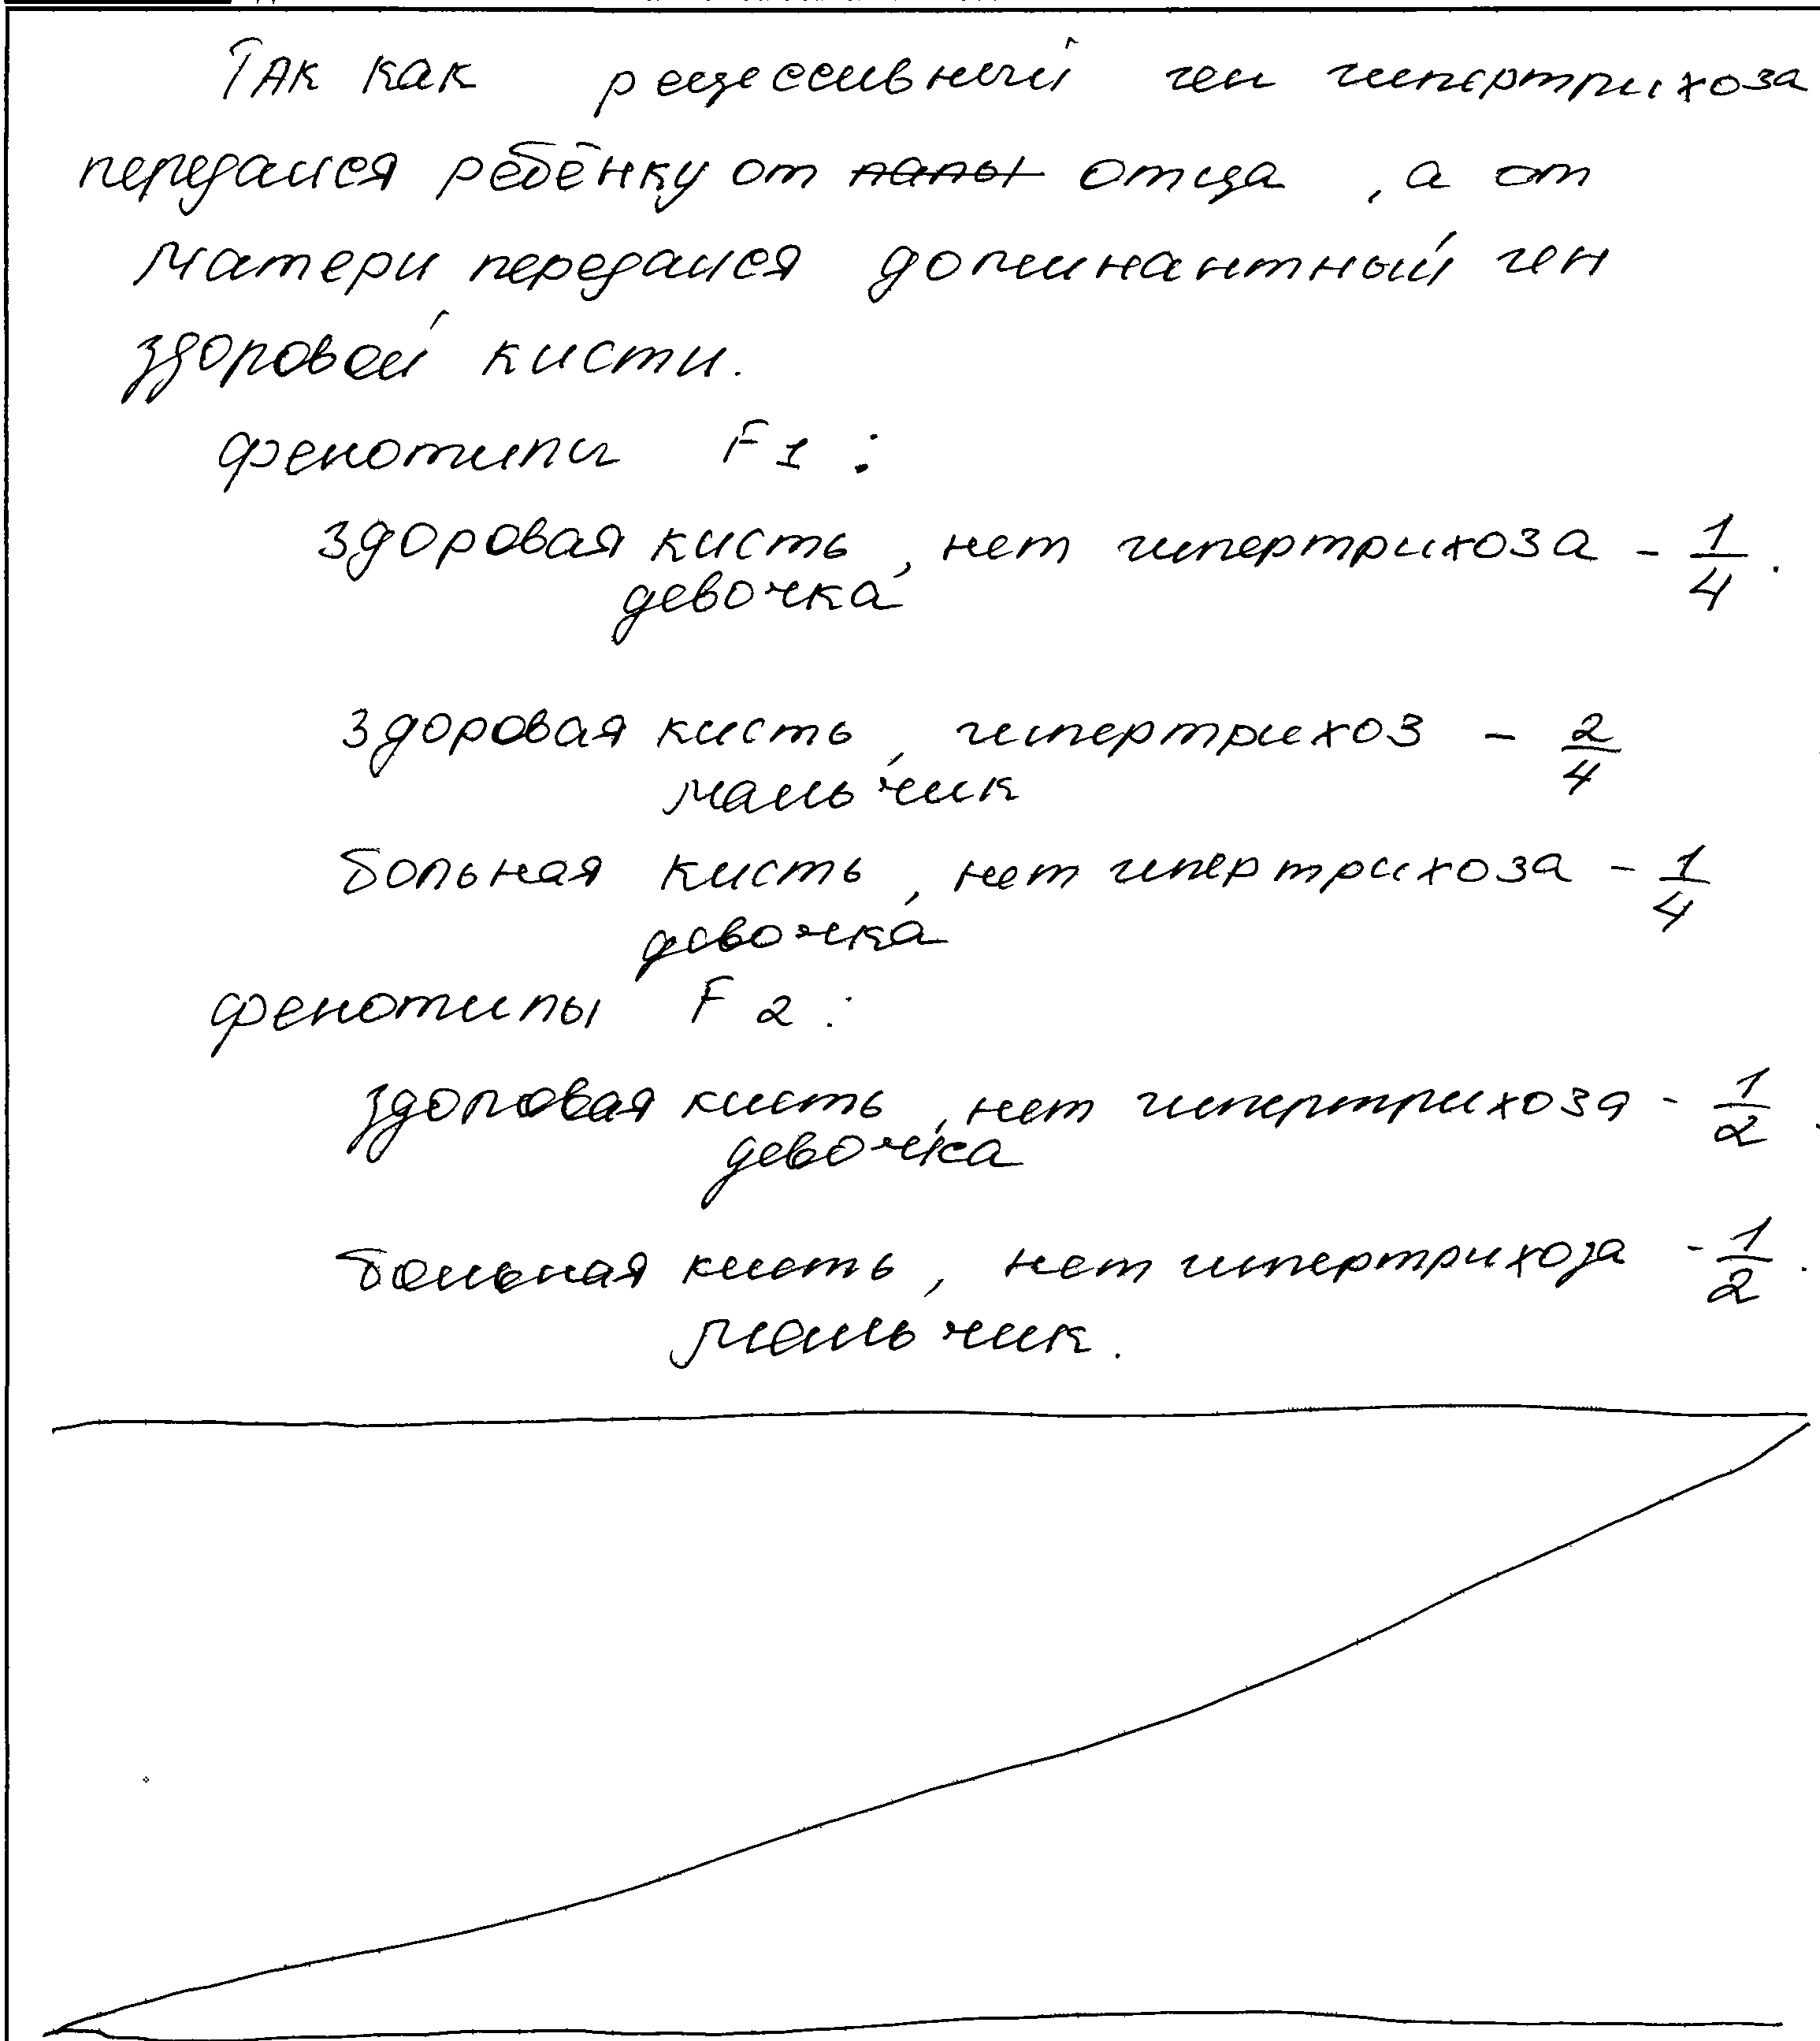 Так как рецессивный ген гипертрихоза
передался ребёнку от папы отца, а от
матери передался доминантный ген
здоровой кисти.
фенотипы F1:
здоровая кисть, нет гипертрихоза - 1/4.
девочка
здоровая кисть, гипертрихоз - 2/4
мальчик
больная кисть, нет гипертрихоза - 1/4
девочка
фенотипы F2:
здоровая кисть, нет гипертрихоза - 1/2.
девочка
больная кисть, нет гипертрихоза - 1/2.
мальчик.